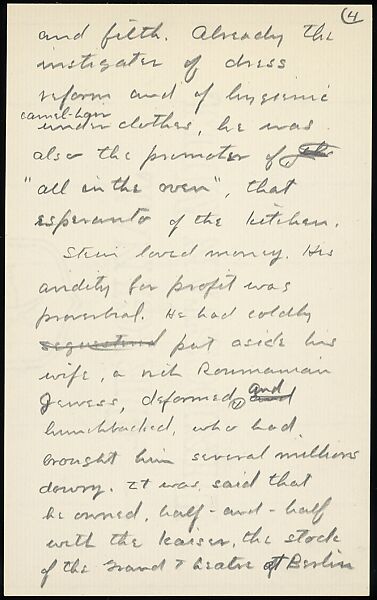 4
and filth. Already the
instigater of dress
reform and of hygienic
camel-hair
under clothes, he was
also the promoter of
"all in the oven", that
esperanto of the kitchen.
Stein loved money. His
avidity for profit was
proverbial. He had coldly
sequestered put aside his
wife, a rich Roumanian
Jewess, deformed, and
hunchbacked, who had
brought him several millions
dowry. It was said that
he owned, half-and-half
with the Kaiser, the stock
of the Grand Theatre at Berlin